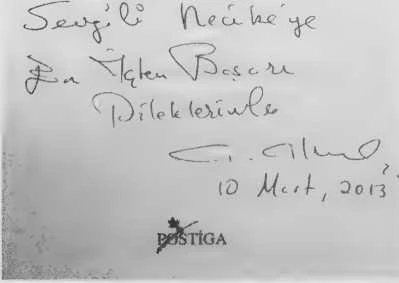 Sevgili Necibe'ye
En İçten Başarı
Dileklerimle
10 Mart, 2013
POSTİGA